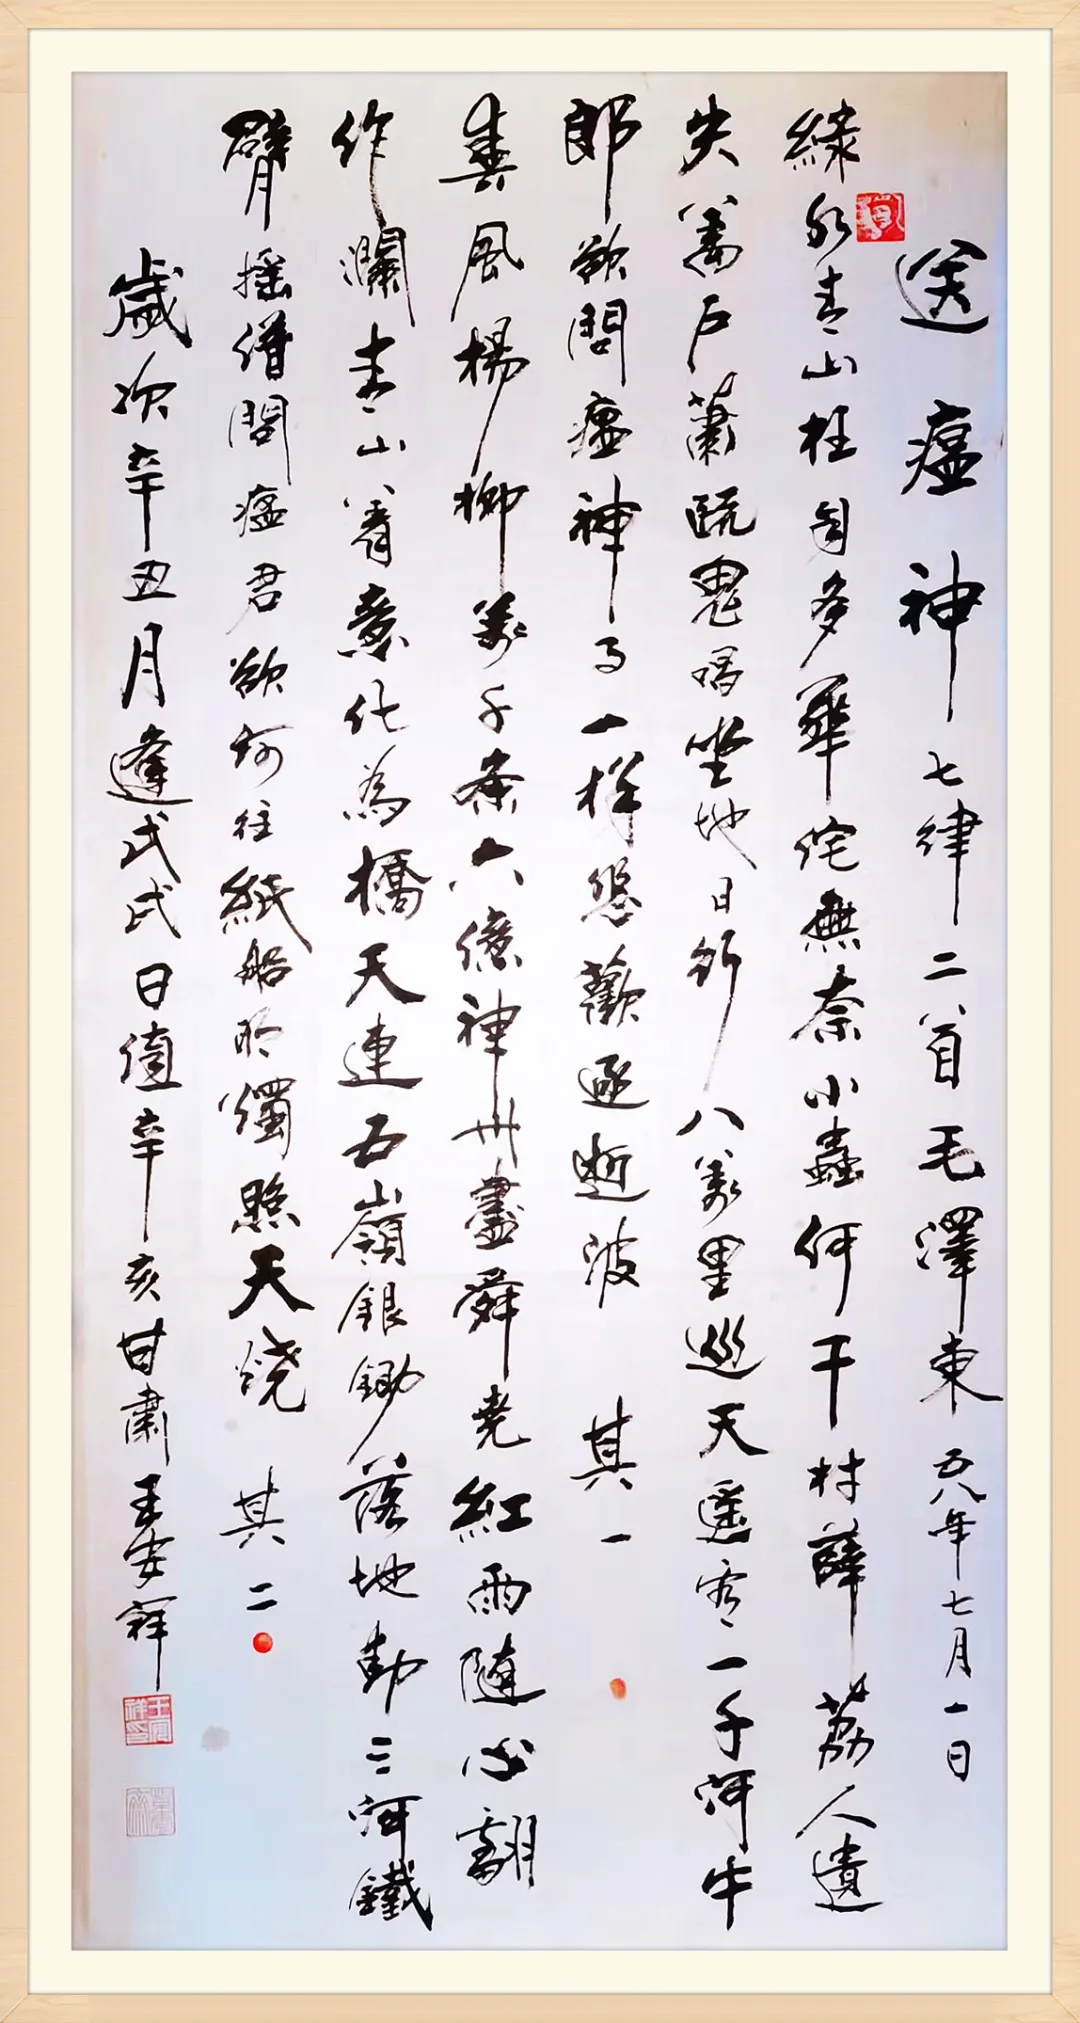 送瘟神 七律二首 毛澤東 五八年七月一日
綠水青山枉自多華佗無奈小蟲何千村薜荔人遺
矢萬户蕭疏鬼唱坐地日行八萬里巡天遙看一千河牛
郎欲問瘟神事一樣悲歡逐逝波 其一
春風楊柳萬千條六億神州盡舜堯紅雨隨心翻
作瀾青山着意化為橋天連五嶺銀鋤落地動三河鐵
臂搖借問瘟君欲何往紙船明燭照天燒 其二
歲次辛丑月逢弍弍日值辛亥甘肅王安祥